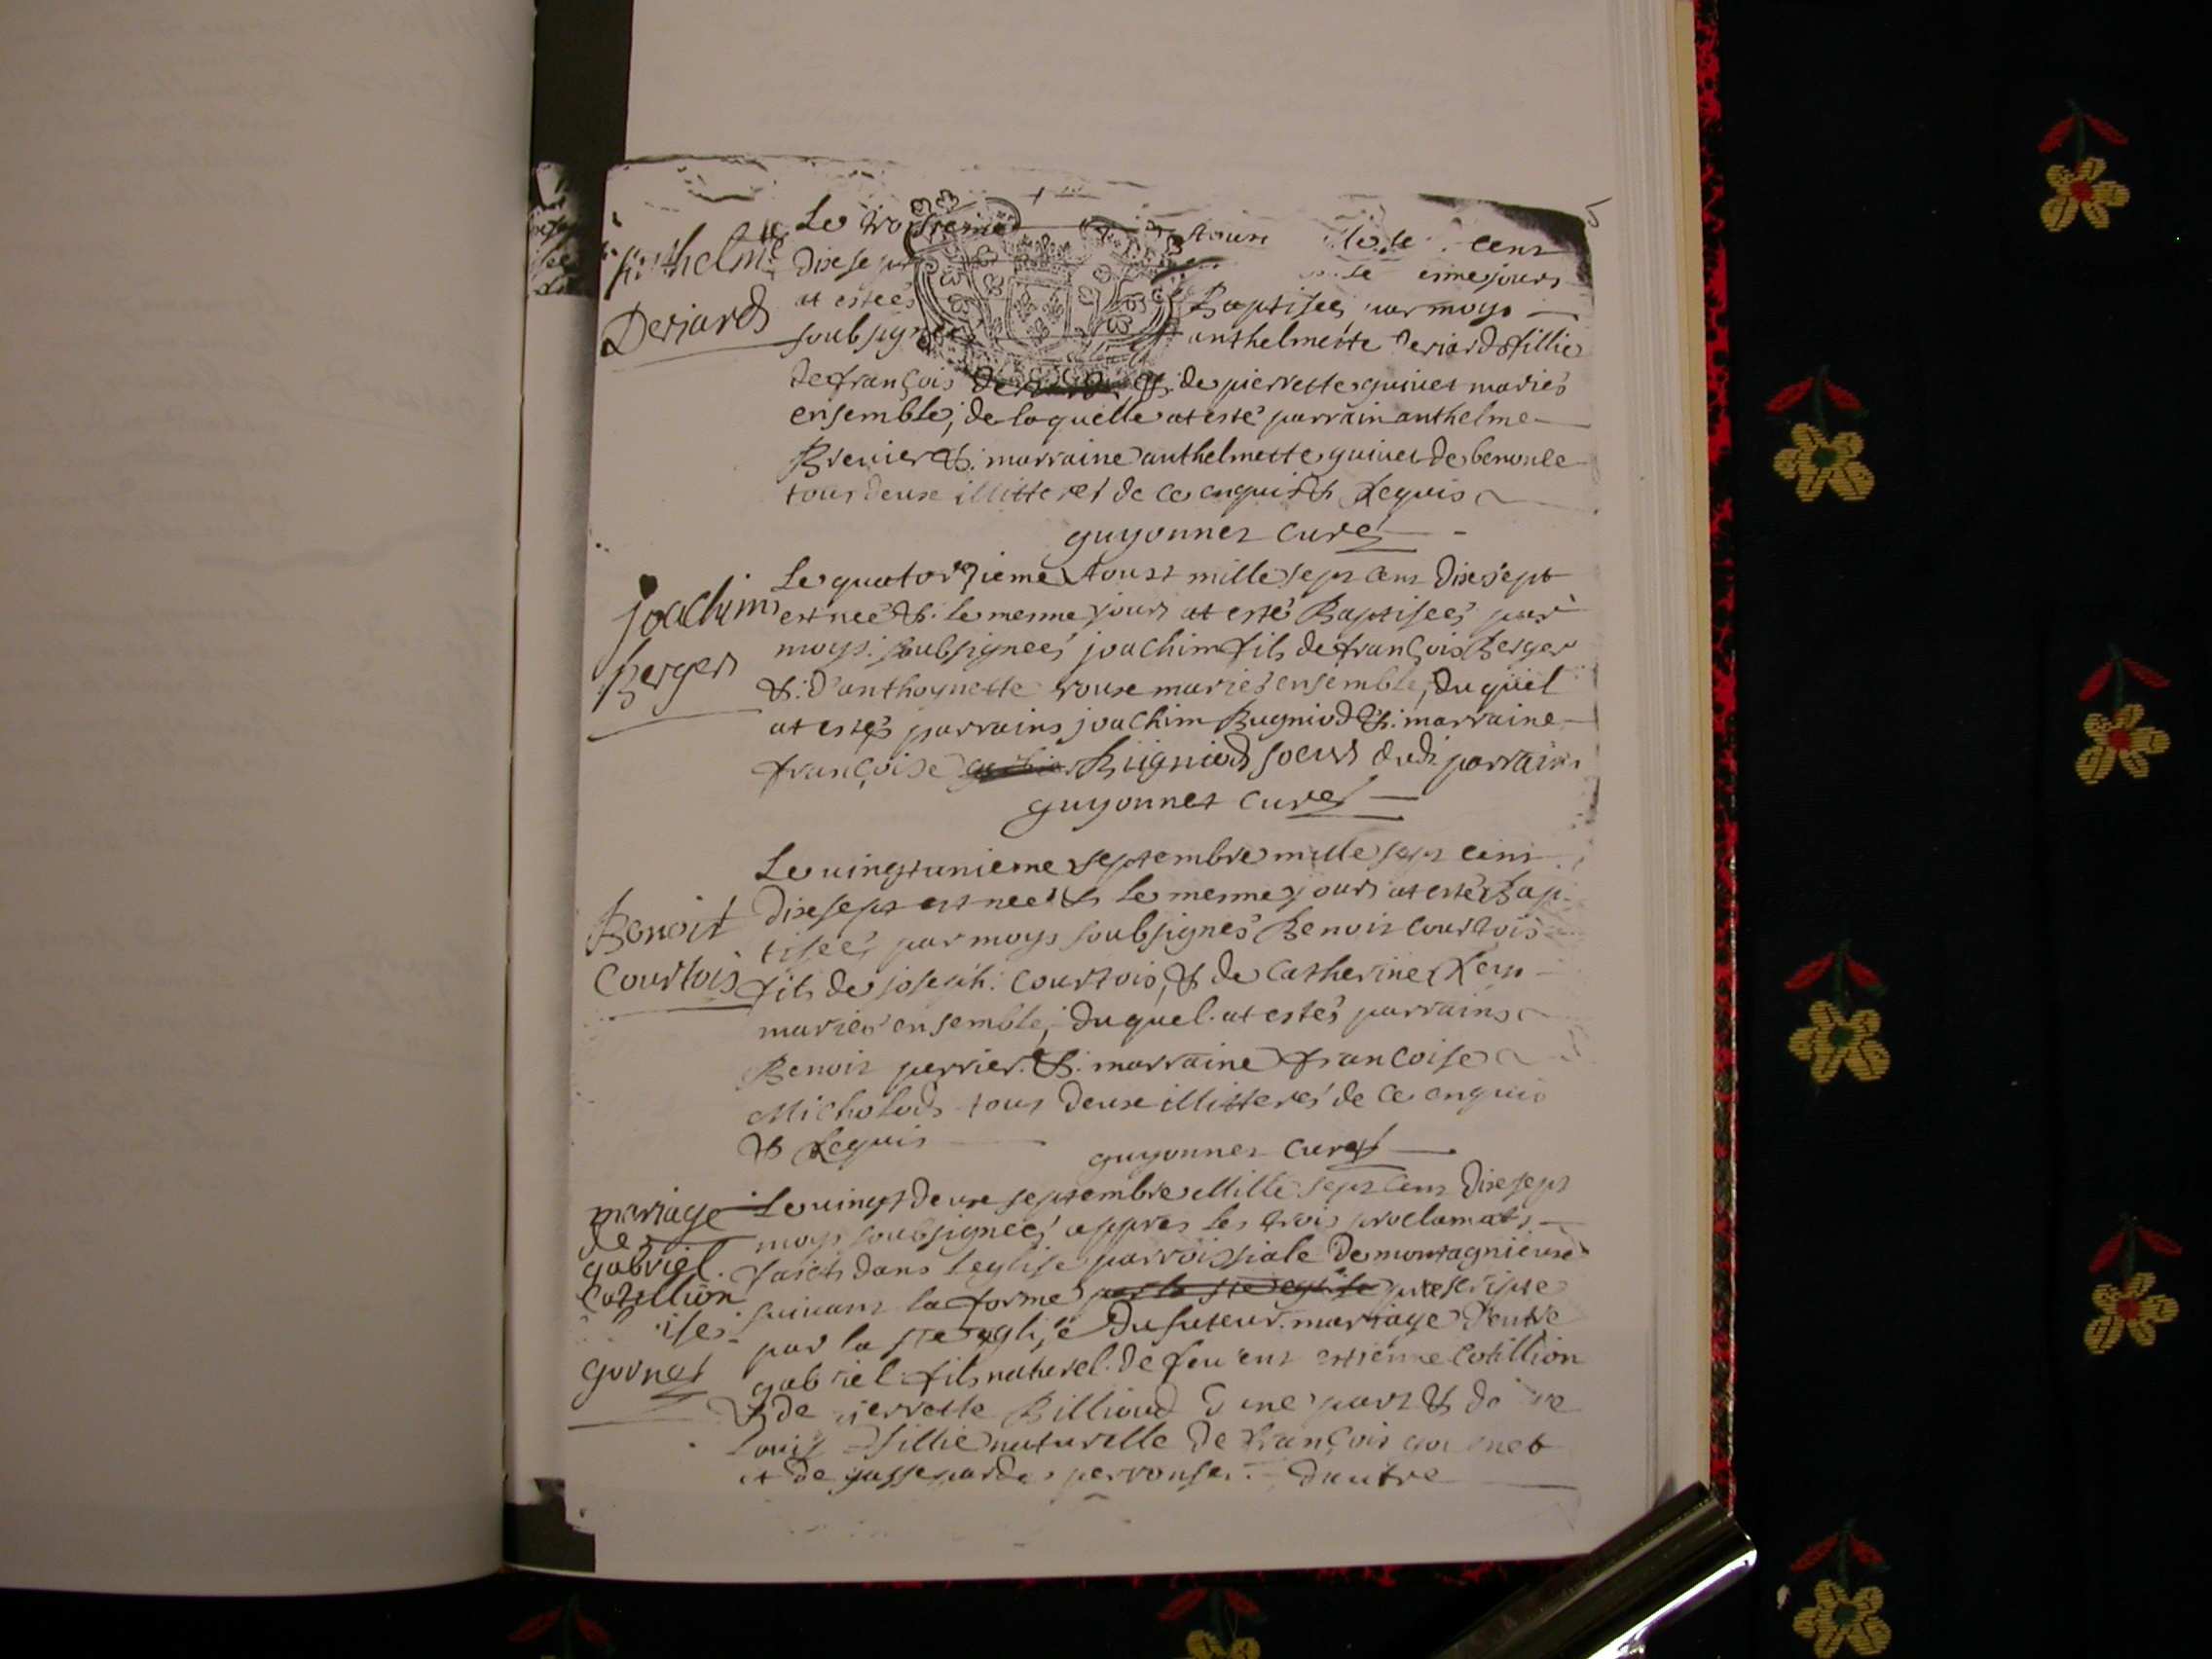 Anthelme
Deriard
Le troisieme Aoust cens
Dixsept jours
at estees Baptisees par moys
soubsignees anthelmette Deriard fillie
de françois & de pierrette guinet mariés
ensemble, de laquelle at esté parrain anthelme
Brevier & marraine anthelmette guinet de benonce
tous deux illitterés de ce enquis & Requis
guyonnet Curé
joachim
Berger
Le quatorzieme Aoust mille sept cens Dixsept
est neé & le mesme jours at esté Baptiseés par
moys soubsigneés joachim fils de françois Berger
& d'anthoynette roux mariés ensemble, du quel
at estés parrains joachim Bugniod & marraine
françoise Bugniod soeur dudt parrain
guyonnet Curé
Benoit
Courtois
Le vingtunieme septembre mille sept cens
Dixsept est neé & le mesme jours at esté Bap-
tiseé, par moys soubsignés Benoit Courtois
fils de joseph Courtois, & de Catherine Rey
mariés ensemble, duquel at estés parrains
Benoit perrier & marraine françoise
Micholod tous deux illitterés de ce enquis
& Requis
guyonnet Curé
mariage
de
gabriel
Cotillion
gornet
Le vingt deux septembre Mille sept cens Dixsept
moys soubsigneés appres les trois proclamats
faicts dans leglise parroissiale de montagnieux
suivant la forme par la ste eglise prescripte
par la ste eglise du futeur mariage d'entre
gabriel fils naturel de feu estienne Cotillion
& de pierrette Billioud d'une part &
Louis fillie naturelle de françois gornet
et de gasparde perrouse d'autre